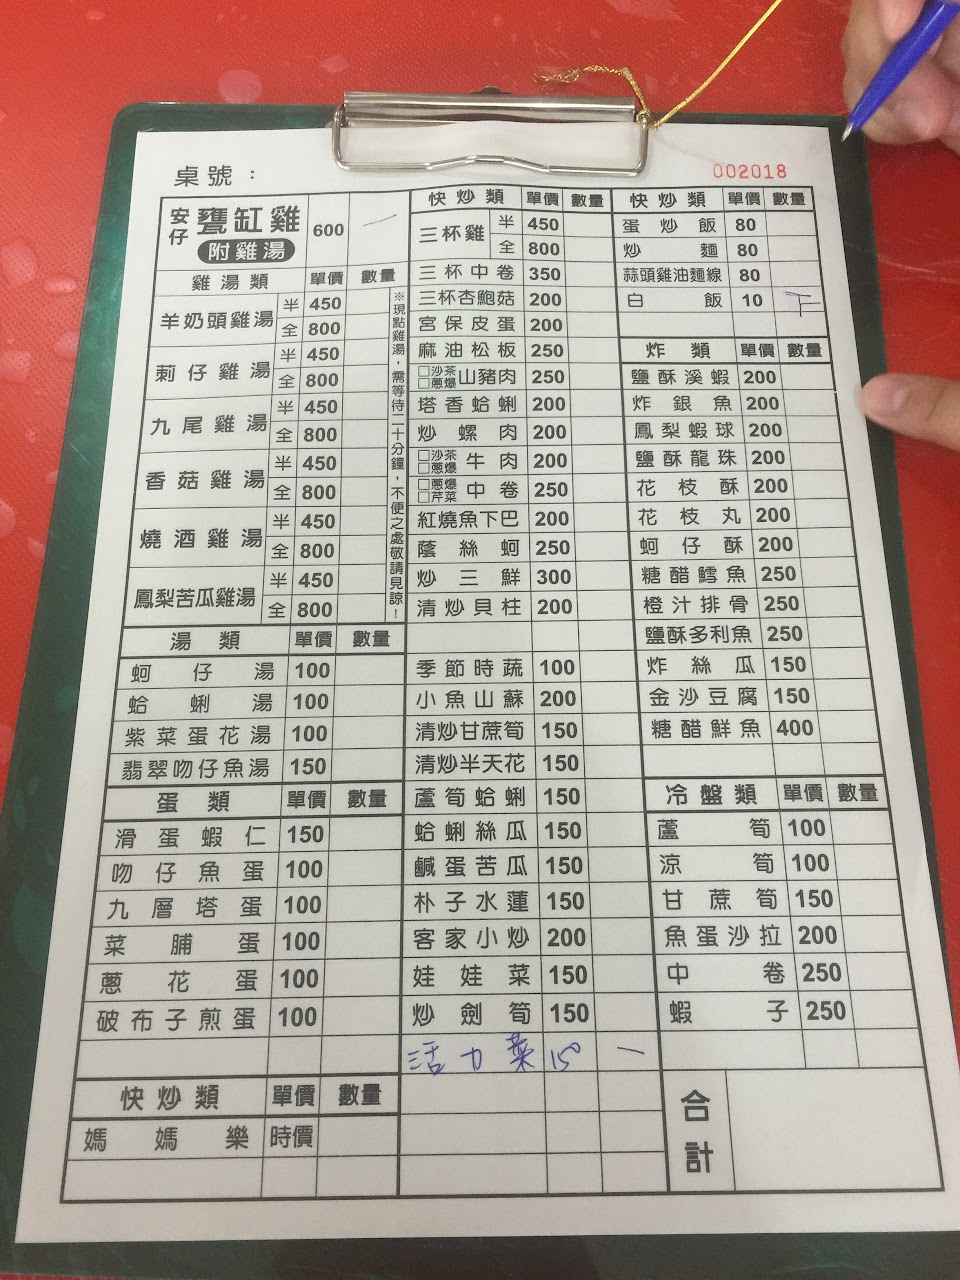 002018
桌號：
安仔 甕缸雞 附雞湯 600 一
雞湯類 單價 數量
羊奶頭雞湯 半 450
全 800
莿仔雞湯 半 450
全 800
九尾雞湯 半 450
全 800
香菇雞湯 半 450
全 800
燒酒雞湯 半 450
全 800
鳳梨苦瓜雞湯 半 450
全 800
※現點雞湯，需等待二十分鐘，不便之處敬請見諒！
湯類 單價 數量
蚵仔湯 100
蛤蜊湯 100
紫菜蛋花湯 100
翡翠吻仔魚湯 150
蛋類 單價 數量
滑蛋蝦仁 150
吻仔魚蛋 100
九層塔蛋 100
菜脯蛋 100
蔥花蛋 100
破布子煎蛋 100
快炒類 單價 數量
媽媽樂 時價
快炒類 單價 數量
三杯雞 半 450
全 800
三杯中卷 350
三杯杏鮑菇 200
宮保皮蛋 200
麻油松板 250
□沙茶 □蔥爆 山豬肉 250
塔香蛤蜊 200
炒螺肉 200
□沙茶 □蔥爆 牛肉 200
□蔥爆 □芹菜 中卷 250
紅燒魚下巴 200
蔭絲蚵 250
炒三鮮 300
清炒貝柱 200
季節時蔬 100
小魚山蘇 200
清炒甘蔗筍 150
清炒半天花 150
蘆筍蛤蜊 150
蛤蜊絲瓜 150
鹹蛋苦瓜 150
朴子水蓮 150
客家小炒 200
娃娃菜 150
炒劍筍 150
活力菜 150 一
快炒類 單價 數量
蛋炒飯 80
炒麵 80
蒜頭雞油麵線 80
白飯 10
炸類 單價 數量
鹽酥溪蝦 200
炸銀魚 200
鳳梨蝦球 200
鹽酥龍珠 200
花枝酥 200
花枝丸 200
蚵仔酥 200
糖醋鱈魚 250
橙汁排骨 250
鹽酥多利魚 250
炸絲瓜 150
金沙豆腐 150
糖醋鮮魚 400
冷盤類 單價 數量
蘆筍 100
涼筍 100
甘蔗筍 150
魚蛋沙拉 200
中卷 250
蝦子 250
合計